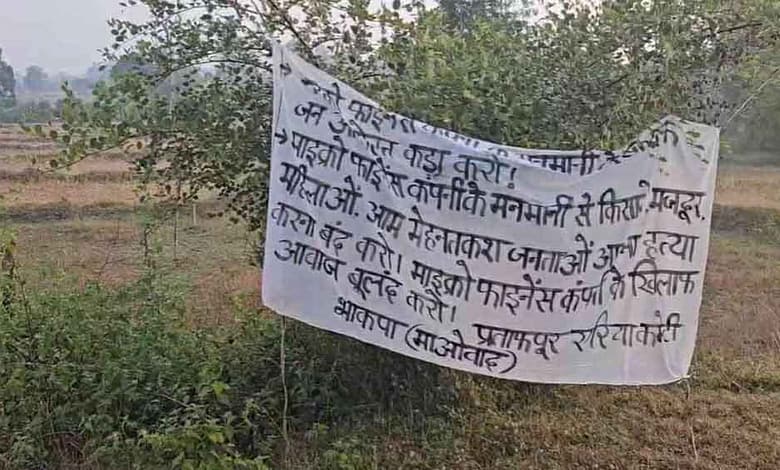 फाइनेंस मनमानी
जन आंदोलन कड़ा करो!
→ माइक्रो फाइनेंस कंपनी के मनमानी से किसान, मजदूर,
महिलाओं, आम मेहनतकश जनताओं आत्म हत्या
करना बंद करो। माइक्रो फाइनेंस कंपनी के खिलाफ
आवाज बूलंद करो!
प्रतापपूर एरिया कमेटी
भाकपा (माओवाद)